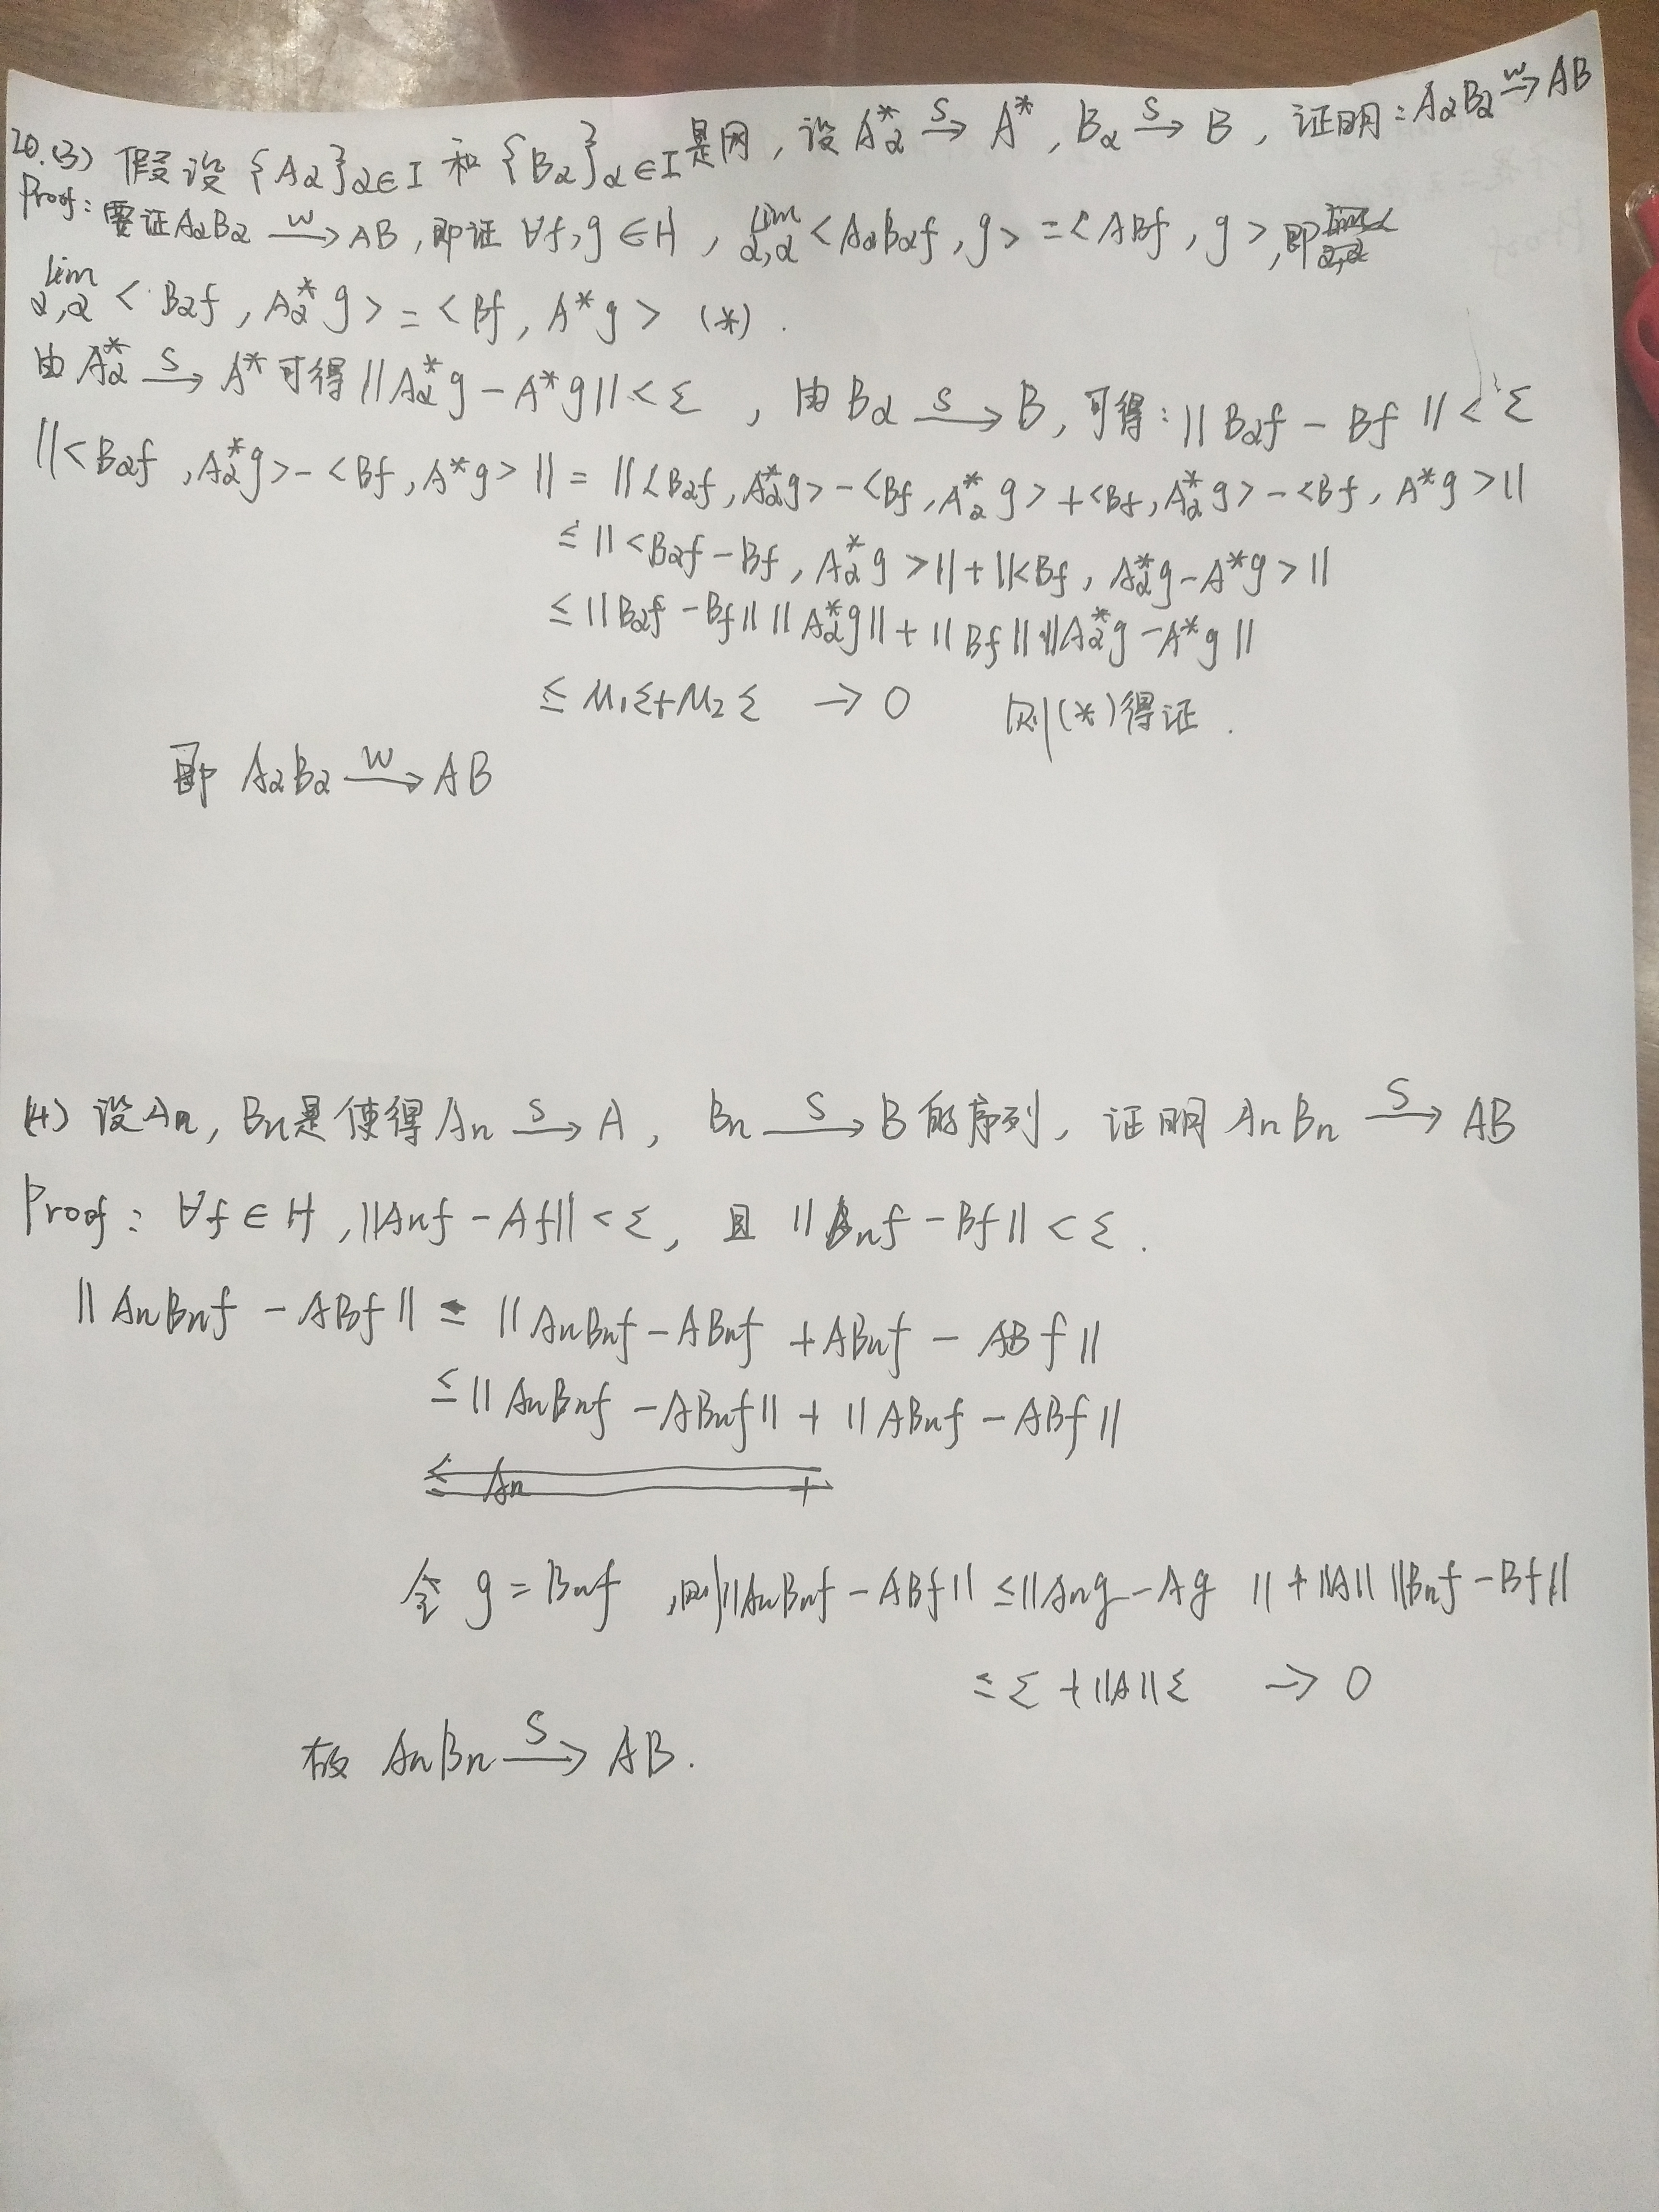 20.(3) 假设 {Aα}α∈I 和 {Bα}α∈I 是网, 设 Aα* —S→ A*, Bα —S→ B, 证明: AαBα —w→ AB
Proof: 要证 AαBα —w→ AB, 即证 ∀f, g ∈ H, lim α,α <AαBαf, g> = <ABf, g>, 即
lim α,α <Bαf, Aα*g> = <Bf, A*g> (*).
由 Aα* —S→ A* 可得 ||Aα*g - A*g|| < Σ, 由 Bα —S→ B, 可得: ||Bαf - Bf|| < Σ
||<Bαf, Aα*g> - <Bf, A*g>|| = ||<Bαf, Aα*g> - <Bf, Aα*g> + <Bf, Aα*g> - <Bf, A*g>||
≤ ||<Bαf - Bf, Aα*g>|| + ||<Bf, Aα*g - A*g>||
≤ ||Bαf - Bf|| ||Aα*g|| + ||Bf|| ||Aα*g - A*g||
≤ M₁Σ + M₂Σ → 0 则(*)得证.
即 AαBα —w→ AB
(4) 设 An, Bn 是使得 An —S→ A, Bn —S→ B 的序列, 证明 AnBn —S→ AB
Proof: ∀f ∈ H, ||Anf - Af|| < Σ, 且 ||Bnf - Bf|| < Σ.
||AnBnf - ABf|| = ||AnBnf - ABnf + ABnf - ABf||
≤ ||AnBnf - ABnf|| + ||ABnf - ABf||
≤ An +
令 g = Bnf, 则 ||AnBnf - ABf|| ≤ ||Ang - Ag|| + ||A|| ||Bnf - Bf||
≤ Σ + ||A||Σ → 0
故 AnBn —S→ AB.